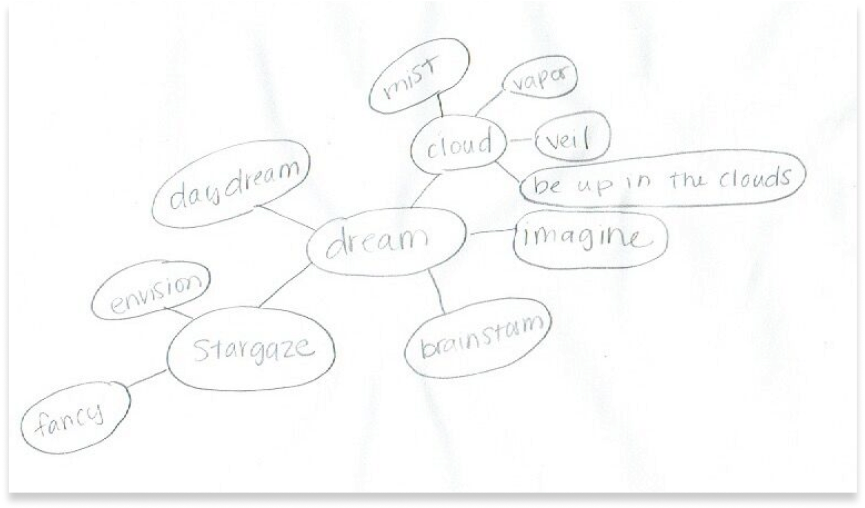 mist
vapor
cloud
veil
be up in the clouds
daydream
dream
imagine
envision
Stargaze
brainstorm
fancy